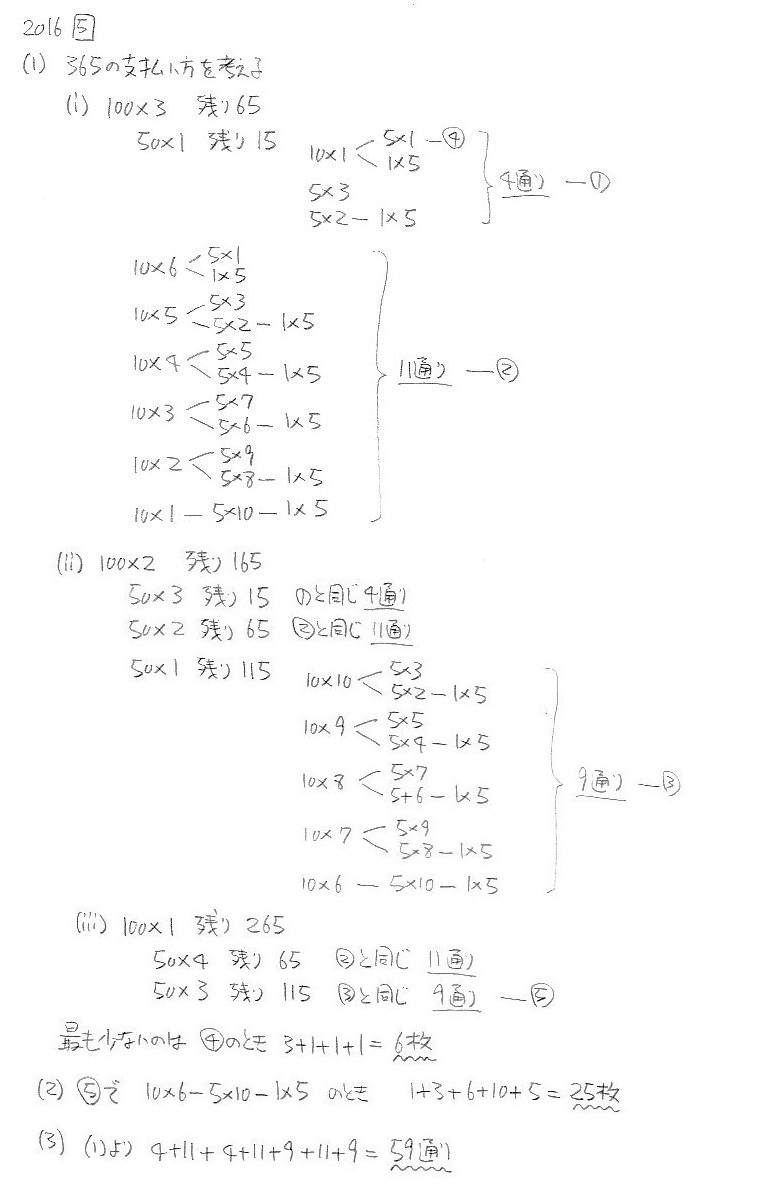 2016 5
(1) 365の支払い方を考える
(i) 100×3 残り65
50×1 残り15
10×1 < 5×1 ー④
1×5
5×3
5×2 ー 1×5
4通り ー①
10×6 < 5×1
1×5
10×5 < 5×3
5×2 ー 1×5
10×4 < 5×5
5×4 ー 1×5
10×3 < 5×7
5×6 ー 1×5
10×2 < 5×9
5×8 ー 1×5
10×1 ー 5×10 ー 1×5
11通り ー②
(ii) 100×2 残り165
50×3 残り15 ①と同じ 4通り
50×2 残り65 ②と同じ 11通り
50×1 残り115
10×10 < 5×3
5×2 ー 1×5
10×9 < 5×5
5×4 ー 1×5
10×8 < 5×7
5+6 ー 1×5
10×7 < 5×9
5×8 ー 1×5
10×6 ー 5×10 ー 1×5
9通り ー③
(iii) 100×1 残り 265
50×4 残り 65 ②と同じ 11通り
50×3 残り 115 ③と同じ 9通り ー⑤
最も少ないのは ④のとき 3+1+1+1= 6枚
(2) ⑤で 10×6ー5×10ー1×5 のとき 1+3+6+10+5=25枚
(3) (1)より 4+11+4+11+9+11+9= 59通り